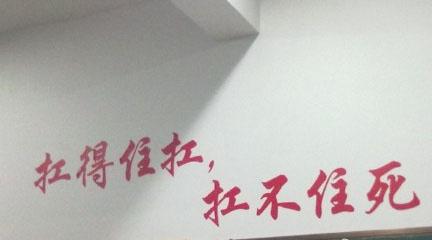 扛得住扛，
扛不住死